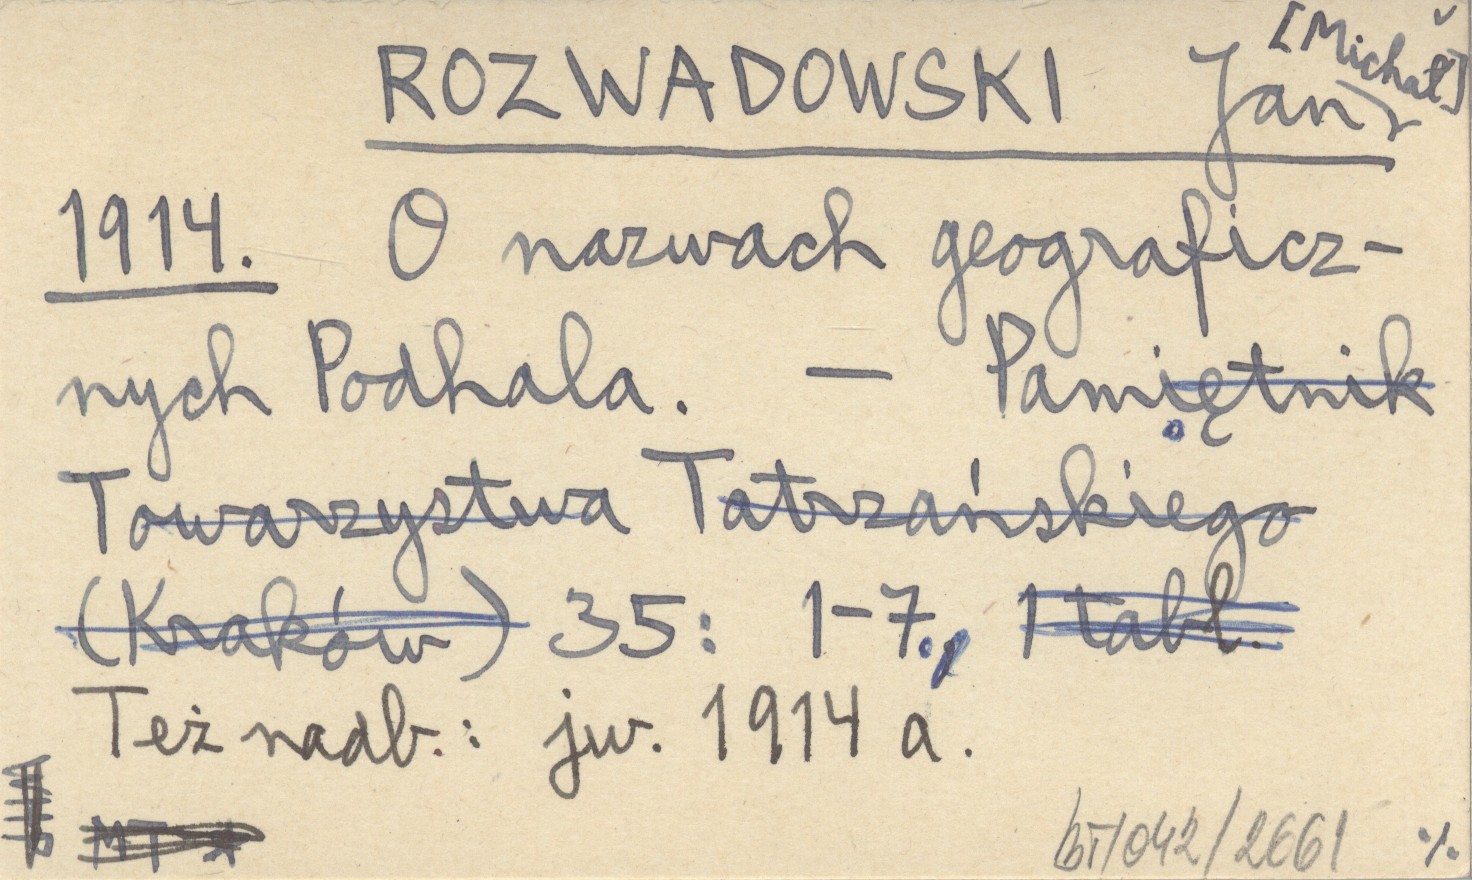 ROZWADOWSKI Jan [Michał]
1914. O nazwach geograficz-
nych Podhala. — Pamiętnik
Towarzystwa Tatrzańskiego
(Kraków) 35: 1-7., 1 tabl.
Też nadb.: jw. 1914 a.
MT
bT/042/2661 ./.